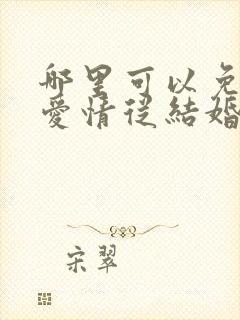 哪里可以免
爱情从結婚
宋翠